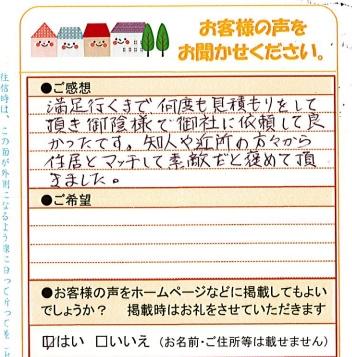 お客様の声を
お聞かせください。
●ご感想
満足行くまで何度も見積もりをして
頂き御陰様で御社に依頼して良
かったです。知人や近所の方々から
住居とマッチして素敵だと褒めて頂
きました。
●ご希望
●お客様の声をホームページなどに掲載してもよい
でしょうか？　掲載時はお礼をさせていただきます
☑はい　□いいえ（お名前・ご住所等は載せません）
往信時は、この面が外側になるよう